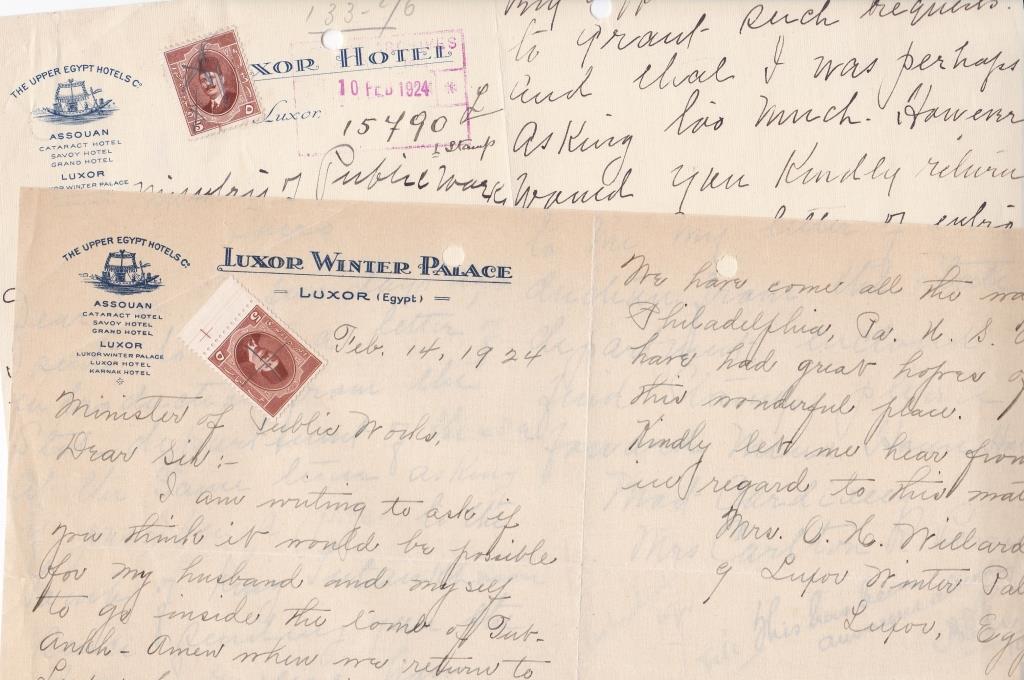 133-46
THE UPPER EGYPT HOTELS Cº
ASSOUAN
CATARACT HOTEL
SAVOY HOTEL
GRAND HOTEL
LUXOR
WINTER PALACE
XOR HOTEL
Luxor,
10 FEB 1924
15490
1 Stamp
Public Works
to grant such requests.
and that I was perhaps
asking too much. However
would you kindly return
letter of
THE UPPER EGYPT HOTELS Cº
ASSOUAN
CATARACT HOTEL
SAVOY HOTEL
GRAND HOTEL
LUXOR
LUXOR WINTER PALACE
LUXOR HOTEL
KARNAK HOTEL
LUXOR WINTER PALACE
LUXOR (Egypt)
Feb. 14, 1924
Minister of Public Works,
Dear Sir:-
I am writing to ask if
you think it would be possible
for my husband and myself
to go inside the tomb of Tut-
Ankh-Amen when we return to
We have come all the wa
Philadelphia, Pa. U. S.
have had great hopes o
this wonderful place.
Kindly let me hear from
in regard to this mat
Mrs. O. H. Willard
℅ Luxor Winter Pal
Luxor, Eg